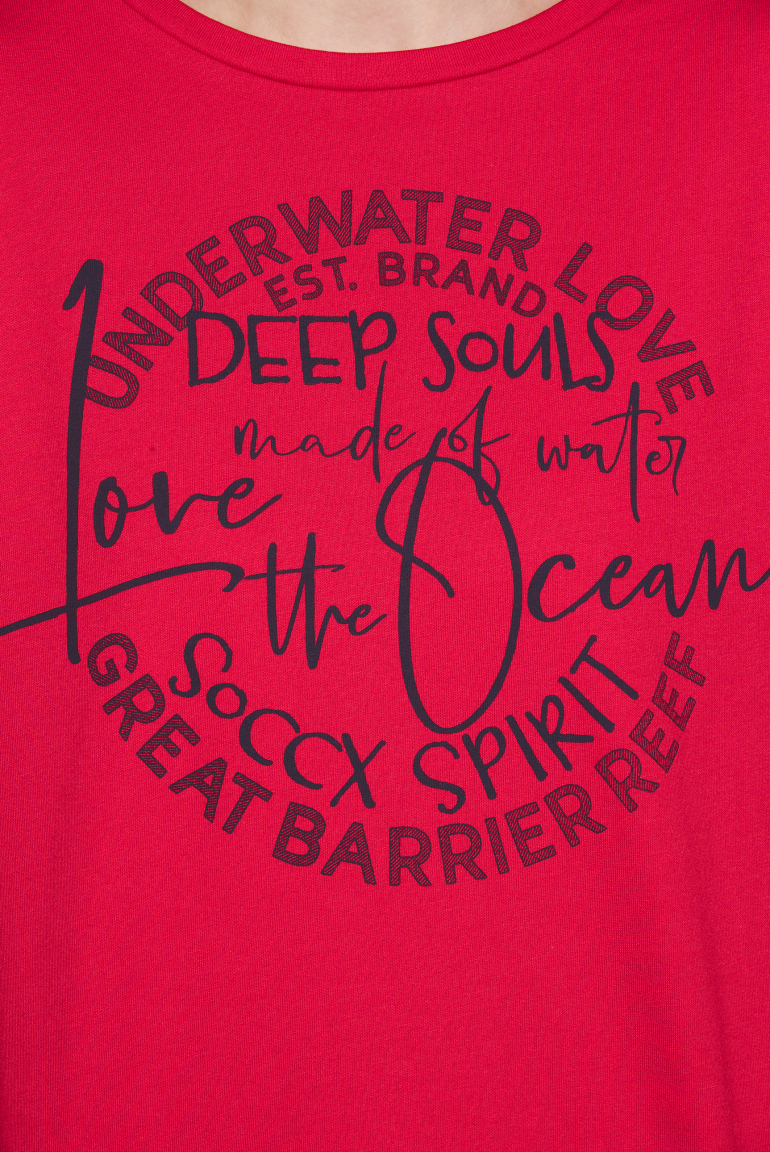 UNDERWATER LOVE
EST. BRAND
DEEP SOULS
made of water
Love
the Ocean
SOCCX SPIRIT
GREAT BARRIER REEF